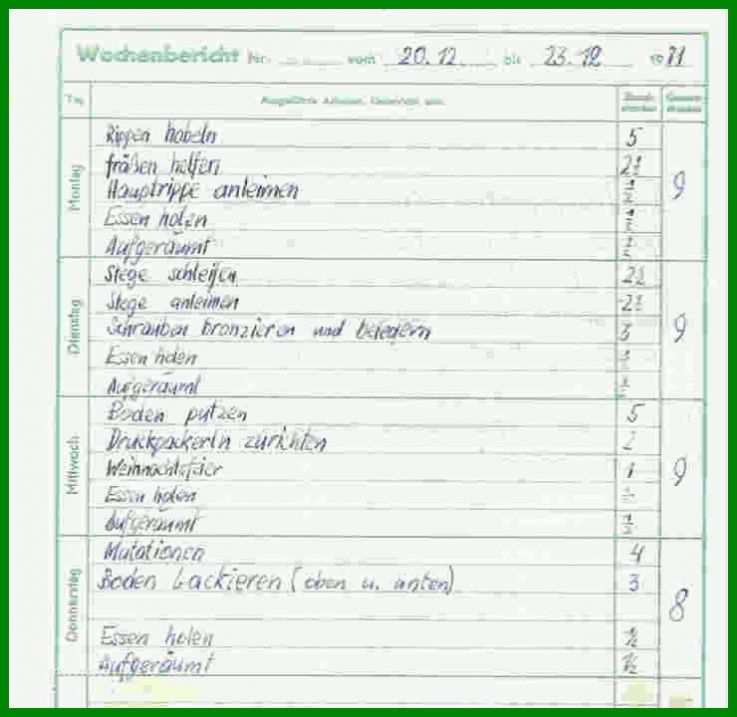 Wochenbericht Nr. vom 20.12. bis 23.12 19 71
Tag Ausgeführte Arbeiten, Unterricht usw.
Montag
Rippen hobeln 5
fräßen helfen 2½
Hauptrippe anleimen ½
Essen holen ½
Aufgeräumt ½
9
Dienstag
Stege schleifen 2½
Stege anleimen 2½
Schrauben bronzieren und 3
Essen holen ½
Aufgeräumt ½
9
Mittwoch
Boden putzen 5
zurichten 2
Weihnachtsfeier 1
Essen holen ½
Aufgeräumt ½
9
Donnerstag
Mutationen 4
Boden Lackieren (oben u. unten) 3
Essen holen ½
Aufgeräumt ½
8